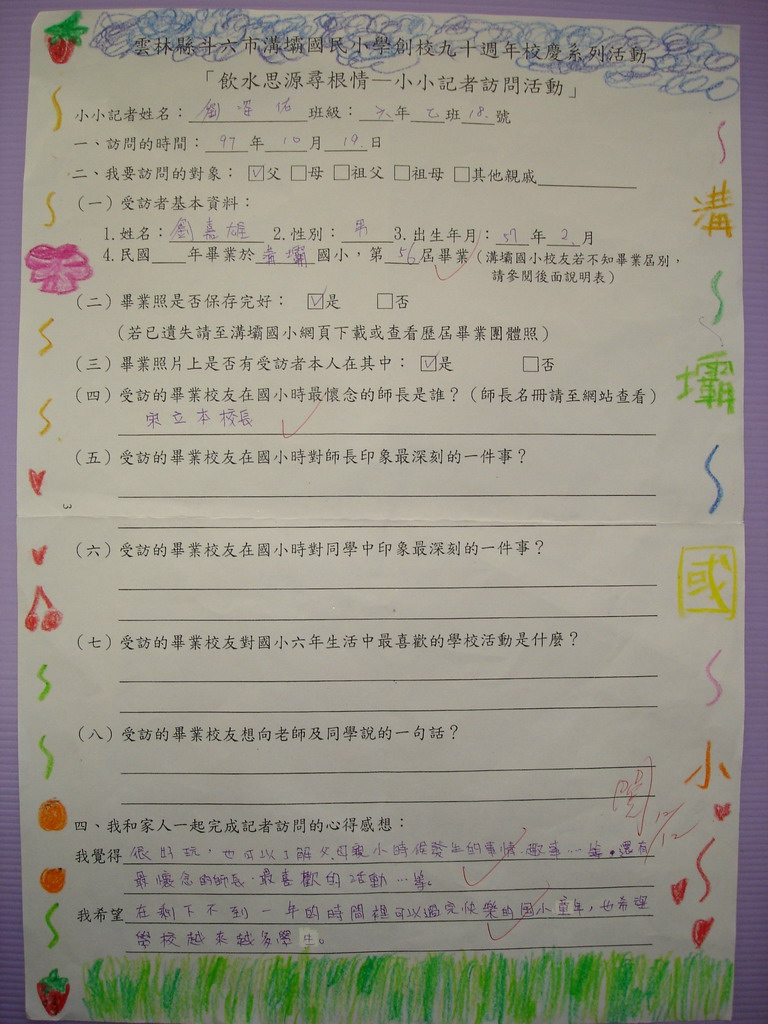 雲林縣斗六市溝壩國民小學創校九十週年校慶系列活動
「飲水思源尋根情—小小記者訪問活動」
小小記者姓名：劉 佑 班級：六年乙班18.號
一、訪問的時間：97年10月19.日
二、我要訪問的對象：☑父 □母 □祖父 □祖母 □其他親戚
（一）受訪者基本資料：
1.姓名：劉嘉雄 2.性別：男 3.出生年月：57年2.月
4.民國 年畢業於溝壩國小，第56屆畢業（溝壩國小校友若不知畢業屆別，
請參閱後面說明表）
（二）畢業照是否保存完好： ☑是 □否
（若已遺失請至溝壩國小網頁下載或查看歷屆畢業團體照）
（三）畢業照片上是否有受訪者本人在其中： ☑是 □否
（四）受訪的畢業校友在國小時最懷念的師長是誰？（師長名冊請至網站查看）
立本校長
（五）受訪的畢業校友在國小時對師長印象最深刻的一件事？
3
（六）受訪的畢業校友在國小時對同學中印象最深刻的一件事？
（七）受訪的畢業校友對國小六年生活中最喜歡的學校活動是什麼？
（八）受訪的畢業校友想向老師及同學說的一句話？
四、我和家人一起完成記者訪問的心得感想：
我覺得很好玩，也可以了解父母親小時候發生的事情.趣事…等。還有
最懷念的師長.最喜歡的活動…等。
我希望在剩下不到一年的時間裡可以過完快樂的國小童年，也希望
學校越來越多學生。
閱 12/12
溝
壩
國
小